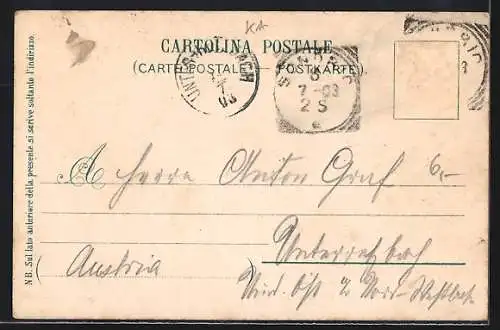 KA
CARTOLINA POSTALE
(CARTE POSTALE — POSTKARTE).
7-03
2 S
03
NB. Sul lato anteriore della presente si scrive soltanto l'indirizzo.
A Herrn Anton Graf 6,-
(Austria)
Nied. Öst. Nord-Westbah